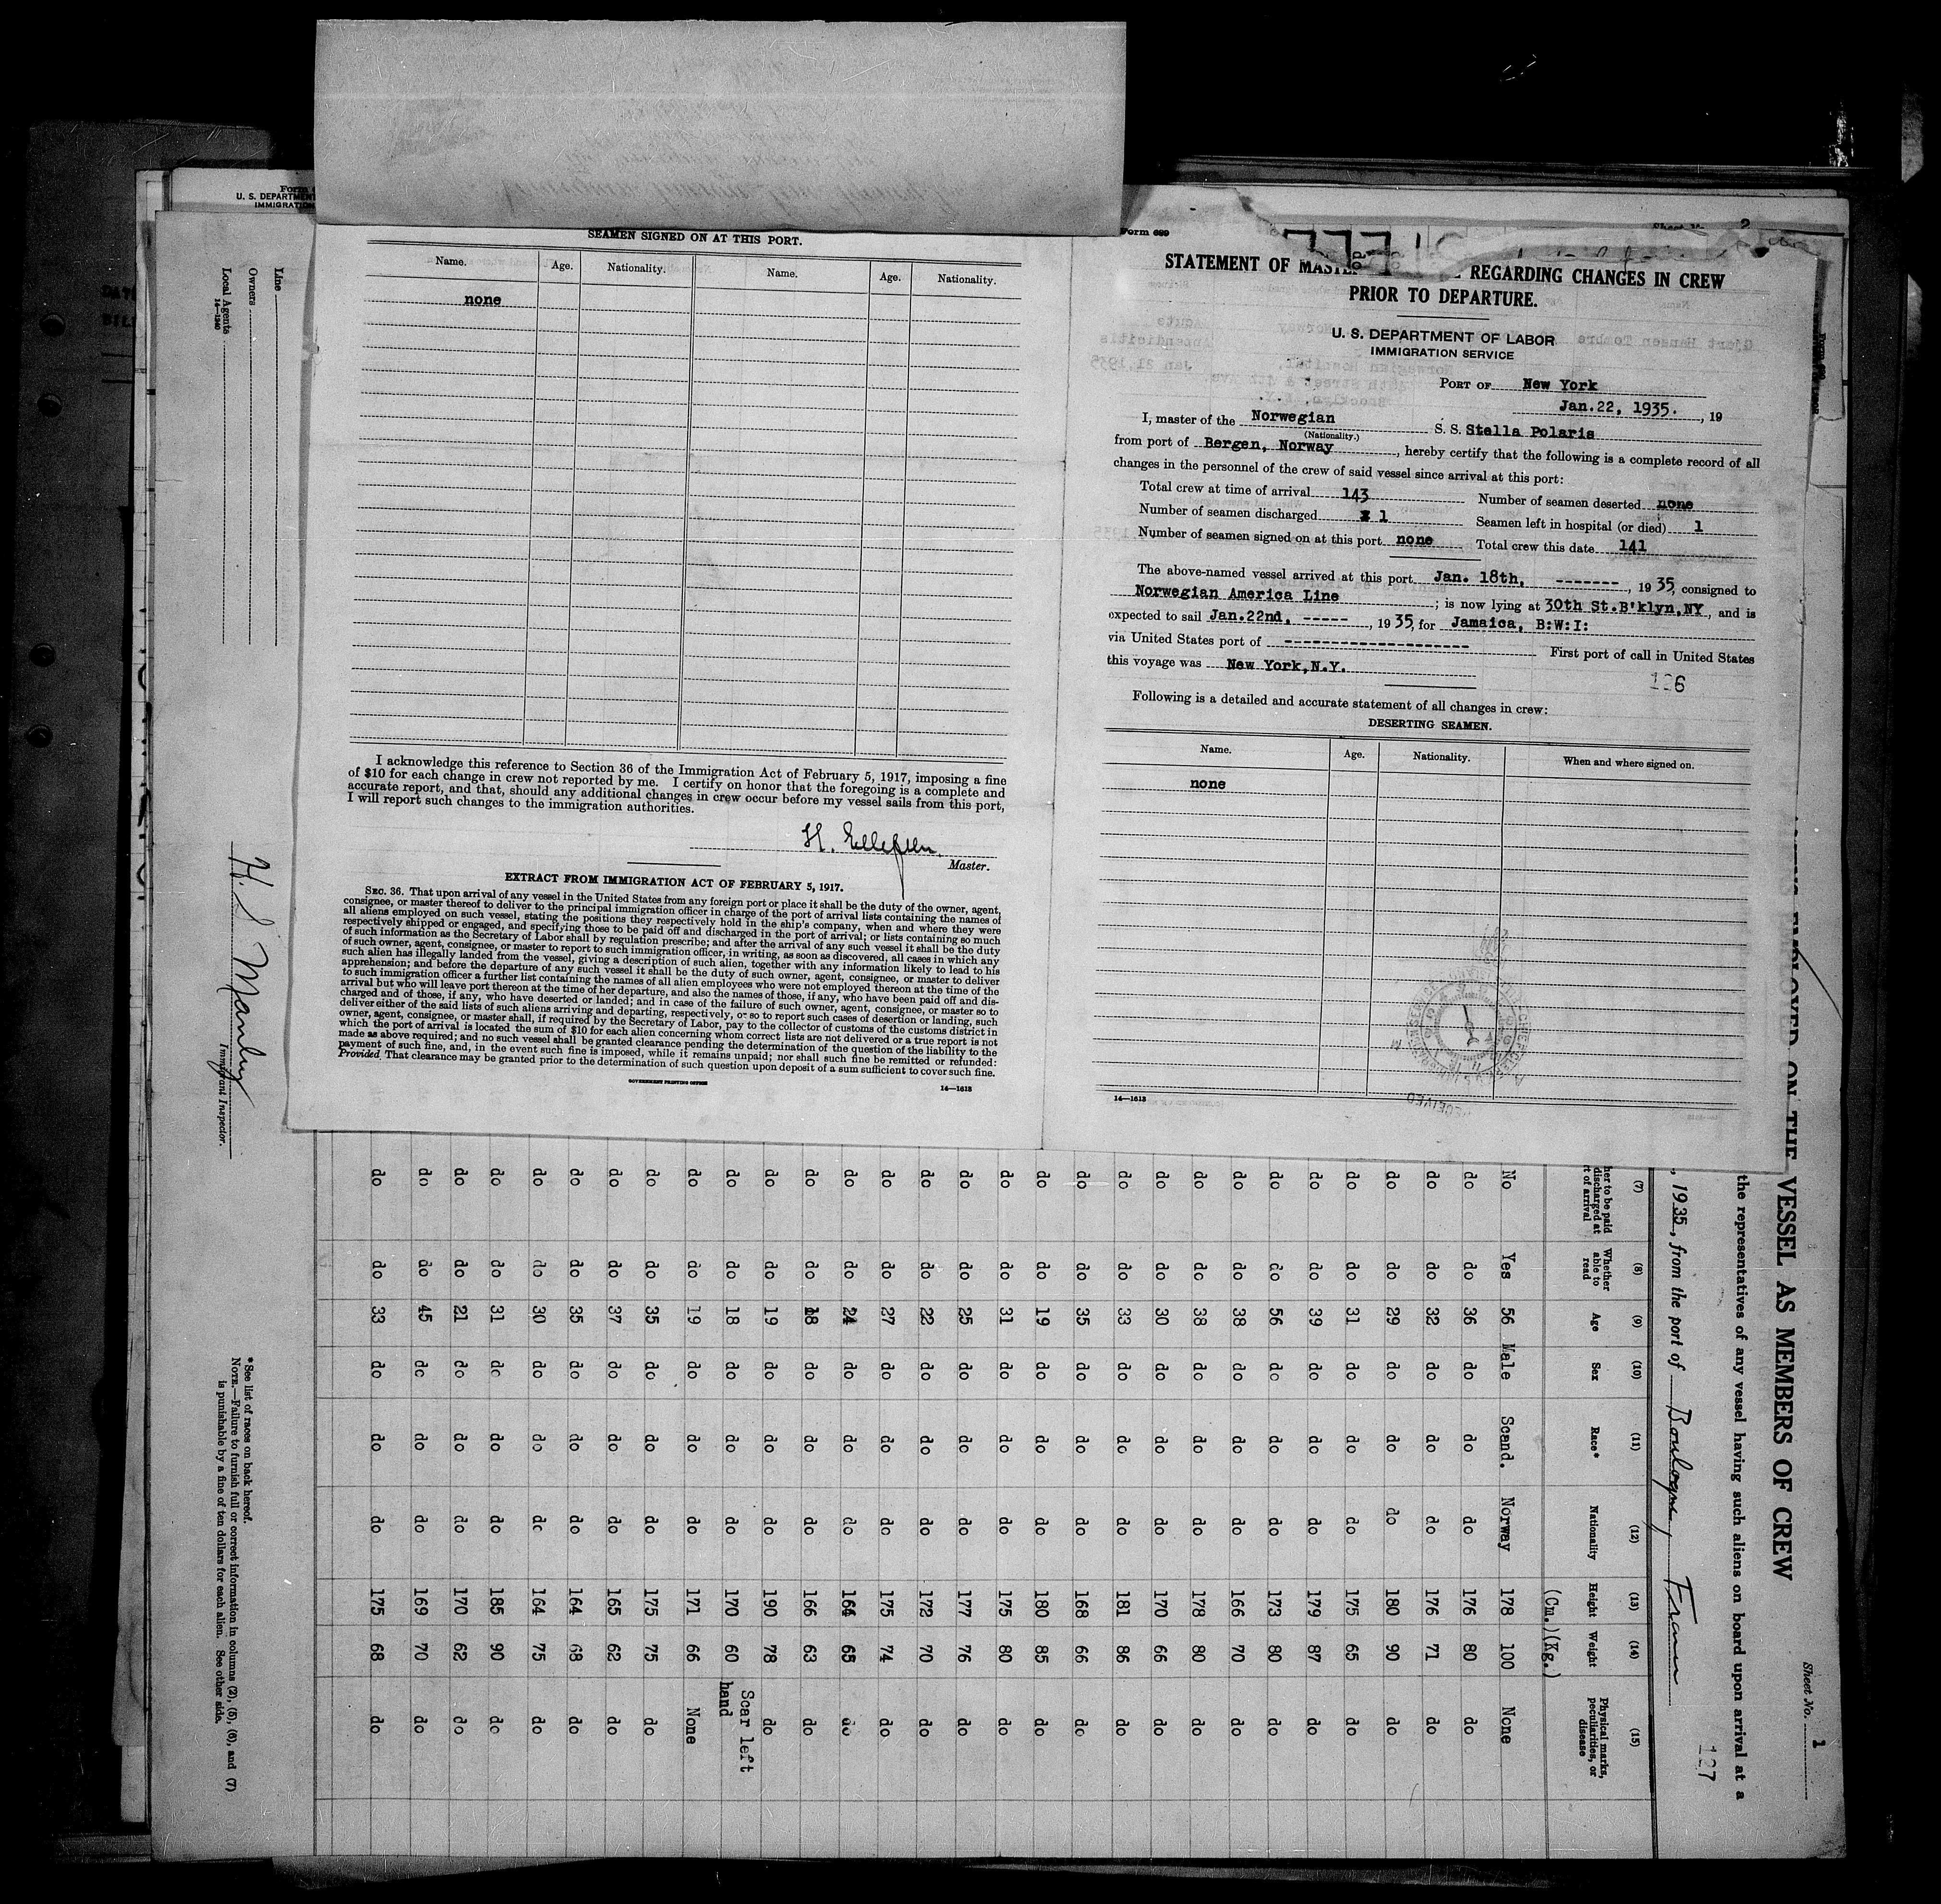 Form 689
STATEMENT OF REGARDING CHANGES IN CREW
PRIOR TO DEPARTURE.
U. S. DEPARTMENT OF LABOR
IMMIGRATION SERVICE
PORT OF New York
Jan.22, 1935. , 19
I, master of the Norwegian S. S. Stella Polaris
(Nationality.)
from port of Bergen, Norway, hereby certify that the following is a complete record of all
changes in the personnel of the crew of said vessel since arrival at this port:
Total crew at time of arrival 143 Number of seamen deserted none
Number of seamen discharged 1 Seamen left in hospital (or died) 1
Number of seamen signed on at this port none Total crew this date 141
The above-named vessel arrived at this port Jan. 18th, ------- , 1935, consigned to
Norwegian America Line ; is now lying at 30th St.B'klyn,NY, and is
expected to sail Jan.22nd, ----- , 1935, for Jamaica, B:W:I:
via United States port of ------------------- First port of call in United States
this voyage was New York,N.Y.
126
Following is a detailed and accurate statement of all changes in crew:
DESERTING SEAMEN.
Name. Age. Nationality. When and where signed on.
none
14—1613
SEAMEN SIGNED ON AT THIS PORT.
Name. Age. Nationality. Name. Age. Nationality.
none
I acknowledge this reference to Section 36 of the Immigration Act of February 5, 1917, imposing a fine
of $10 for each change in crew not reported by me. I certify on honor that the foregoing is a complete and
accurate report, and that, should any additional changes in crew occur before my vessel sails from this port,
I will report such changes to the immigration authorities.
H. Ellefsen
Master.
EXTRACT FROM IMMIGRATION ACT OF FEBRUARY 5, 1917.
SEC. 36. That upon arrival of any vessel in the United States from any foreign port or place it shall be the duty of the owner, agent,
consignee, or master thereof to deliver to the principal immigration officer in charge of the port of arrival lists containing the names of
all aliens employed on such vessel, stating the positions they respectively hold in the ship's company, when and where they were
respectively shipped or engaged, and specifying those to be paid off and discharged in the port of arrival; or lists containing so much
of such information as the Secretary of Labor shall by regulation prescribe; and after the arrival of any such vessel it shall be the duty
of such owner, agent, consignee, or master to report to such immigration officer, in writing, as soon as discovered, all cases in which any
such alien has illegally landed from the vessel, giving a description of such alien, together with any information likely to lead to his
apprehension; and before the departure of any such vessel it shall be the duty of such owner, agent, consignee, or master to deliver
to such immigration officer a further list containing the names of all alien employees who were not employed thereon at the time of the
arrival but who will leave port thereon at the time of her departure, and also the names of those, if any, who have been paid off and dis-
charged and of those, if any, who have deserted or landed; and in case of the failure of such owner, agent, consignee, or master so to
deliver either of the said lists of such aliens arriving and departing, respectively, or so to report such cases of desertion or landing, such
owner, agent, consignee, or master shall, if required by the Secretary of Labor, pay to the collector of customs of the customs district in
which the port of arrival is located the sum of $10 for each alien concerning whom correct lists are not delivered or a true report is not
made as above required; and no such vessel shall be granted clearance pending the determination of the question of the liability to the
payment of such fine, and, in the event such fine is imposed, while it remains unpaid; nor shall such fine be remitted or refunded:
Provided That clearance may be granted prior to the determination of such question upon deposit of a sum sufficient to cover such fine.
GOVERNMENT PRINTING OFFICE 14—1613
Sheet No. 1
EMPLOYED ON THE VESSEL AS MEMBERS OF CREW
the representatives of any vessel having such aliens on board upon arrival at a
, 1935, from the port of Boulogne, France
127
(7) (8) (9) (10) (11) (12) (13) (14) (15)
her to be paid discharged at rt of arrival Whether able to read Age Sex Race* Nationality Height Weight Physical marks, peculiarities, or disease
(Cm.)(Kg.)
No Yes 56 Male Scand. Norway 178 100 None
do do 36 do do do 176 80 do
do do 32 do do do 176 71 do
do do 29 do do do 180 90 do
do do 31 do do do 175 65 do
do do 39 do do do 179 87 do
do do 56 do do do 173 80 do
do do 38 do do do 166 70 do
do do 38 do do do 178 80 do
do do 30 do do do 170 66 do
do do 33 do do do 181 86 do
do do 35 do do do 168 66 do
do do 19 do do do 180 85 do
do do 31 do do do 175 80 do
do do 25 do do do 177 76 do
do do 22 do do do 172 70 do
do do 27 do do do 175 74 do
do do 24 do do do 164 65 do
do do 18 do do do 166 63 do
do do 19 do do do 190 78 do
do do 18 do do do 170 60 Scar left hand
do do 19 do do do 171 66 None
do do 35 do do do 175 75 do
do do 37 do do do 165 62 do
do do 35 do do do 164 68 do
do do 30 do do do 164 75 do
do do 31 do do do 185 90 do
do do 21 do do do 170 62 do
do do 45 do do do 169 70 do
do do 33 do do do 175 68 do
Line
Owners
Local Agents
14—1240
H. S. Manley
Immigrant Inspector.
*See list of races on back hereof.
NOTE.—Failure to furnish full or correct information in columns (2), (5), (6), and (7)
is punishable by a fine of ten dollars for each alien. See other side.